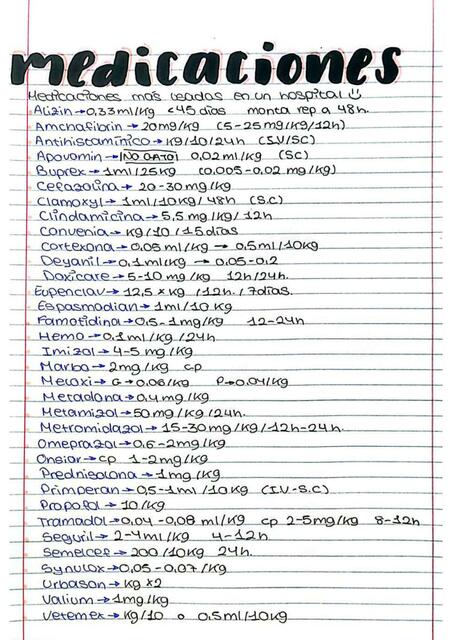 medicaciones
Medicaciones más usadas en un hospital
Alizin → 0,33ml/kg <45 días monta rep a 48h.
Amchafibrin → 20mg/kg (5-25mg/kg/12h)
Antihistamínico → kg/10/24h (I.V/SC)
Apovomin → NO GATO 0,02ml/kg (SC)
Buprex → 1ml/25kg (0.005-0.02 mg/kg)
Cefazolina → 20-30mg/kg
Clamoxyl → 1ml/10kg/48h (S.C)
Clindamicina → 5,5mg/kg/12h
Convenia → kg/10/15días
Cortexona → 0,05ml/kg → 0,5ml/10kg
Deyanil → 0,1ml/kg → 0,05-0,2
Doxicare → 5-10mg/kg 12h/24h.
Eupenclav → 12,5 x kg /12h. / 7días.
Espasmodian → 1ml/10kg
Famotidina → 0,5-1mg/kg 12-24h
Hemo → 0,1ml/kg/24h
Imizol → 4-5mg/kg
Marbo → 2mg/kg cp
Meloxi → G → 0,06/kg P → 0,04/kg
Metadona → 0,4mg/kg
Metamizol → 50mg/kg/24h.
Metromidazol → 15-30mg/kg/12h-24h.
Omeprazol → 0,6-2mg/kg
Onsior → cp 1-2mg/kg
Prednisolona → 1mg/kg
Primperan → 0,5-1ml/10kg (I.V-S.C)
Propofol → 10/kg
Tramadol → 0,04-0,08 ml/kg cp 2-5mg/kg 8-12h
Seguril → 2-4ml/kg 4-12h
Semelcef → 200/10kg 24h.
Synulox → 0,05-0,07/kg
Urbason → kg x2
Valium → 1mg/kg
Vetemex → kg/10 o 0.5ml/10kg